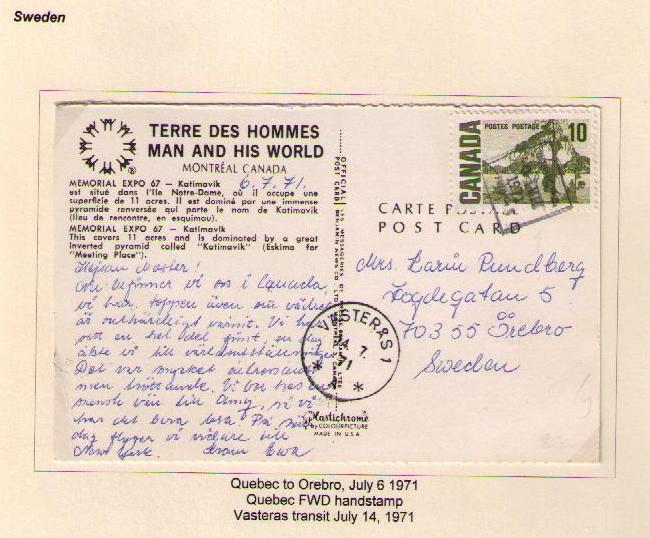 Sweden
TERRE DES HOMMES
MAN AND HIS WORLD
MONTRÉAL CANADA
MEMORIAL EXPO 67 – Katimavik
6.7.71.
est situé dans l'Ile Notre-Dame, où il occupe une
superficie de 11 acres. Il est dominé par une immense
pyramide renversée qui porte le nom de Katimavik
(lieu de rencontre, en esquimau).
MEMORIAL EXPO 67 – Katimavik
This covers 11 acres and is dominated by a great
inverted pyramid called "Katimavik" (Eskimo for
"Meeting Place").
Hejsan Moster!
Nu befinner vi oss i Canada,
vi har toppen även om vädret
är outhärdligt varmt. Vi har
sett en hel del fint, en dag
åkte vi till världsutställningen
Det var mycket intressant
men tröttande. Vi har haft en
svensk vän till Amy, så vi
har det bara bra! På
dag flyger vi vidare till
New York. Kram Ewa
CANADA
POSTES POSTAGE
10
CARTE
POST CARD
Mrs. Karin Rundberg
Fogdegatan 5
703 55 Örebro
Sweden
VÄSTERÅS 1
7.
71
Plastichrome
by COLOURPICTURE
MADE IN U.S.A.
Quebec to Orebro, July 6 1971
Quebec FWD handstamp
Vasteras transit July 14, 1971